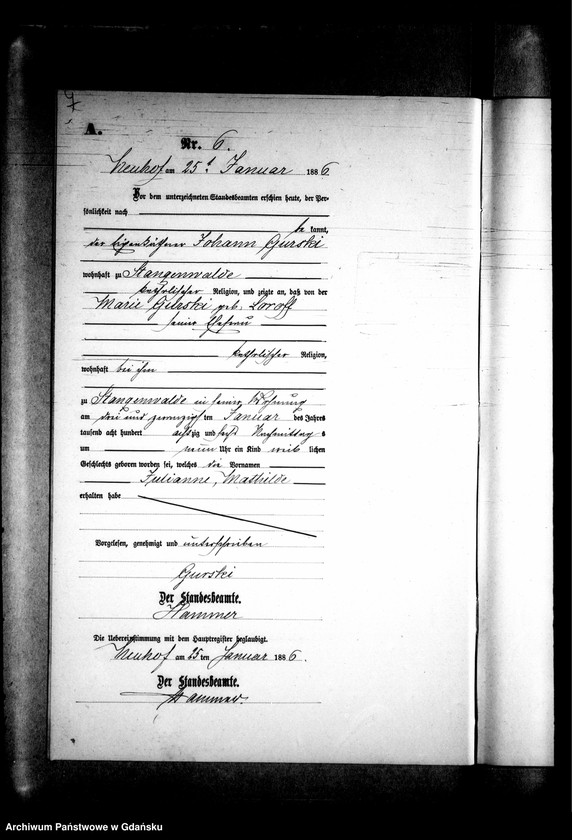 7
A.
Nr. 6.
Neuhof am 25t Januar 1886.
Vor dem unterzeichneten Standesbeamten erschien heute, der Per-
sönlichkeit nach
be kannt,
der Eigenkäthner Johann Gurski
wohnhaft zu Stangenwalde
katholischer Religion, und zeigte an, daß von der
Marie Gurski geb.
seiner Ehefrau
katholischer Religion,
wohnhaft bei ihm
zu Stangenwalde in seiner Wohnung
am drei und zwanzigsten Januar des Jahres
tausend acht hundert achtzig und sechs Nachmittag s
um neun Uhr ein Kind weib lichen
Geschlechts geboren worden sei, welches die Vornamen
Julianne, Mathilde
erhalten habe
Vorgelesen, genehmigt und unterschrieben
Gurski
Der Standesbeamte.
Hammer
Die Uebereinstimmung mit dem Hauptregister beglaubigt.
Neuhof am 25 ten Januar 1886.
Der Standesbeamte.
Hammer.
Archiwum Państwowe w Gdańsku